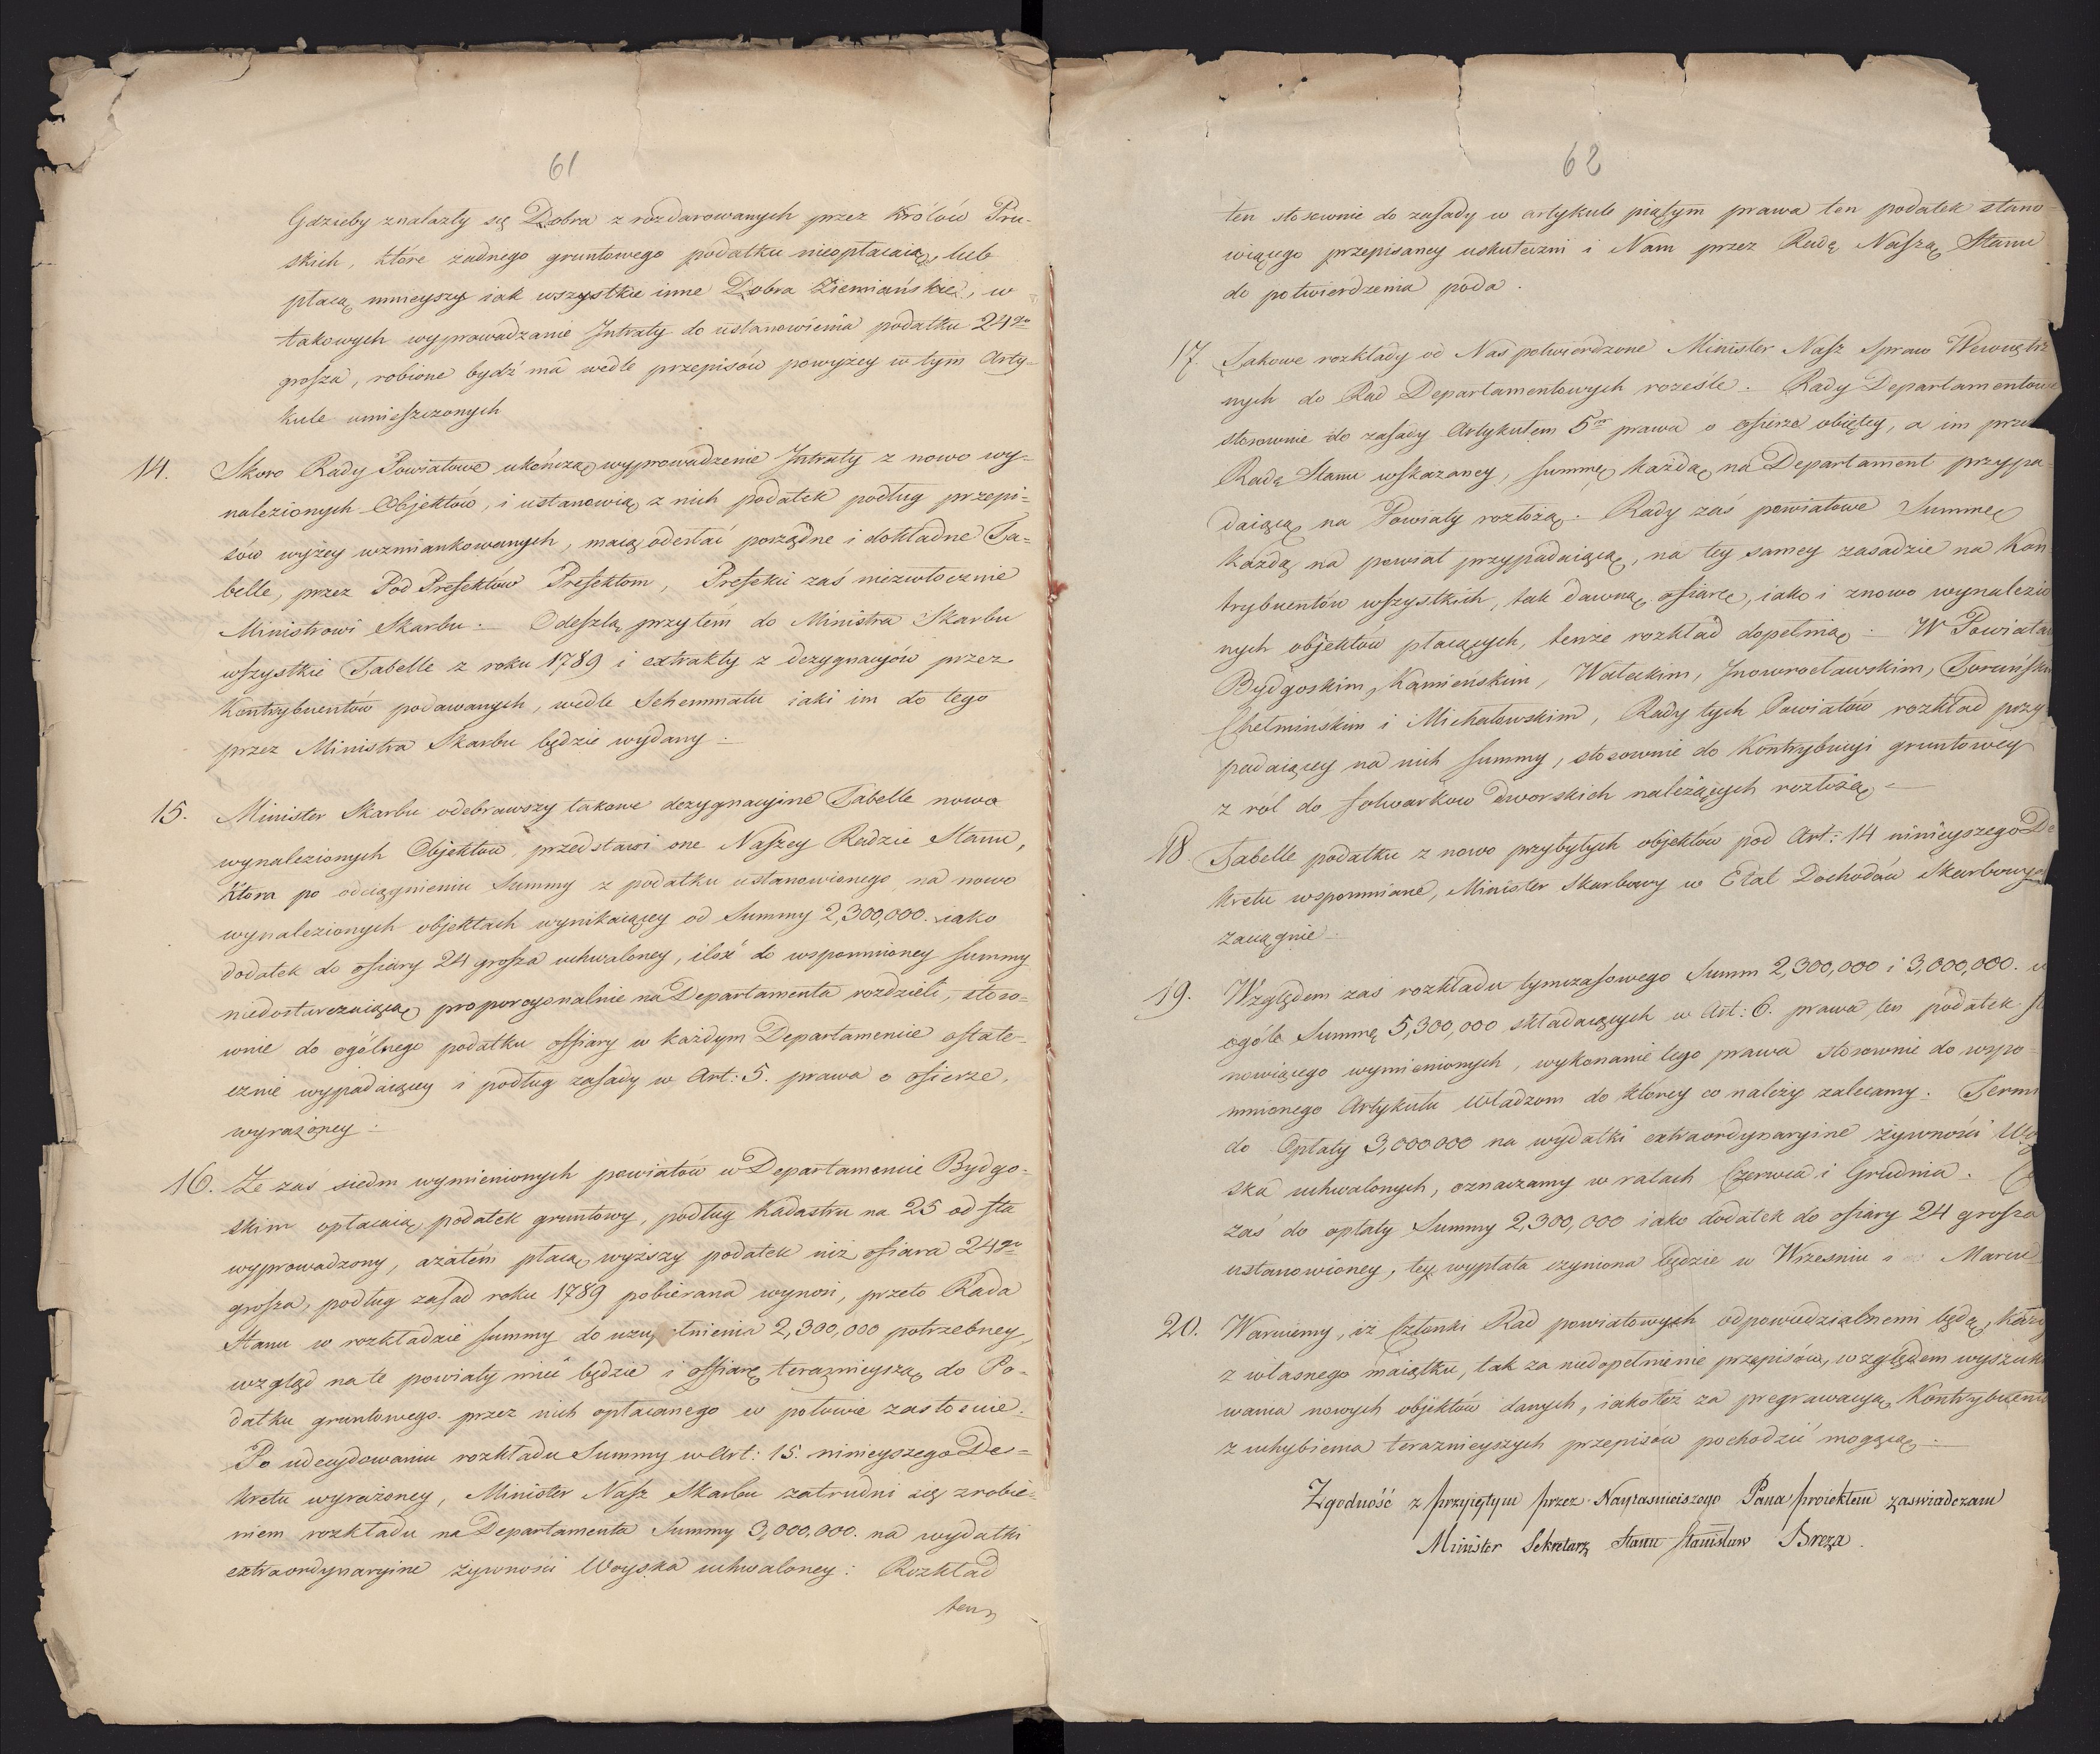 61
Gdzieby znalazły się Dobra z rozdarowanych przez Królów Pru-
skich, które żadnego gruntowego podatku nieopłacaią, lub
płacą mnieyszy iak wszystkie inne Dobra Ziemiańskie, w
takowych wyprowadzanie Intraty do ustanowienia podatku 24go
grosza, robione bydź ma wedle przepisów powyżey w tym Arty-
kule umieszczonych
14. Skoro Rady Powiatowe ukończą wyprowadzenie Intraty z nowo wy-
nalezionych Objektów, i ustanowią z nich podatek podług przepi-
sów wyżey wzmiankowanych, maią odesłać porządne i dokładne Ta-
belle, przez Pod Prefektów Prefektom, Prefekci zaś niezwłocznie
Ministrowi Skarbu. Odeszlą przytém do Ministra Skarbu
wszystkie Tabelle z roku 1789 i extrakty z dezygnacyiów przez
Kontrybuentów podawanych, wedle Schemmatu iaki im do tego
przez Ministra Skarbu będzie wydany.
15. Minister Skarbu odebrawszy takowe dezygnacyine Tabelle nowo
wynalezionych Objektów, przedstawi one Naszey Radzie Stanu,
która po odciągnieniu Summy z podatku ustanowionego na nowo
wynalezionych objektach wynikaiącey od Summy 2,300,000. iako
dodatek do ofiary 24 grosza uchwaloney, ilość do wspomnioney summy
niedostarczaiącą proporcyonalnie na Departamenta rozdzieli, stoso-
wnie do ogólnego podatku ofiary w każdym Departamencie ostate-
cznie wypadaiącey i podług zasady w Art: 5. prawa o ofierze,
wyrażoney.
16. Że zaś siedm wymienionych powiatów w Departamencie Bydgo-
skim opłacaią podatek gruntowy, podług Kadastru na 25 od sta
wyprowadzony, azatém płacą wyższy podatek niż ofiara 24go
grosza, podług zasad roku 1789 pobierana wynosi, przeto Rada
Stanu w rozkładzie summy do uzupełnienia 2,300,000 potrzebney,
wzgląd na te powiaty mieć będzie i offiarę teraznieyszą do Po-
datku gruntowego przez nich opłacanego w połowie zastosuie.
Po udecydowaniu rozkładu Summy w Art: 15. ninieyszego De-
kretu wyrażoney, Minister Nasz Skarbu zatrudni się zrobie-
niem rozkładu na Departamenta Summy 3,000,000. na wydatki
extraordynaryine żywności Woyska uchwaloney: Rozkład
ten
62
ten stosownie do zasady w artykule piątym prawa ten podatek stano-
wiącego przepisaney uskuteczni i Nam przez Radę Naszą Stanu
do potwierdzenia poda.
17. Takowe rozkłady od Nas potwierdzone Minister Nasz Spraw Wewnętrz
nych do Rad Departamentowych roześle. Rady Departamentowe
stosownie do zasady Artykułem 5m prawa o ofierze obiętey, a im przez
Radę Stanu wskazaney, summę każdą na Departament przypa-
daiącą na Powiaty rozłożą. Rady zaś powiatowe Summę
każdą na powiat przypadaiącą, na tey samey zasadzie na Kon
trybuentów wszystkich, tak dawną ofiarę, iako i znowo wynalezio
nych objektów płacących, tenże rozkład dopełnią. W Powiatach
Bydgoskim, Kamieńskim, Wałeckim, Inowrocławskim, Toruńskim
Chełmińskim i Michałowskim, Rady tych Powiatów rozkład przy-
padaiącey na nich summy, stosownie do Kontrybucyi gruntowey
z ról do folwarków dworskich należących rozłożą.
18 Tabelle podatku z nowo przybytych objektów pod Art: 14 ninieyszego De
kretu wspomniane, Minister Skarbowy w Etat Dochodów Skarbowych
zaciągnie.
19. Względem zaś rozkładu tymczasowego Summ 2,300,000 i 3,000,000. w
ogóle Summę 5,300,000 składaiących w Art: 6. prawa ten podatek st
nowiącego wymienionych, wykonanie tego prawa stosownie do wspo-
mnionego Artykułu Władzom do którey co należy zalecamy. Termi
do Opłaty 3,000000 na wydatki extraordynaryine żywności Woy
ska uchwalonych, oznaczamy w ratach Czerwca i Grudnia.
zaś do opłaty Summy 2,300,000 iako dodatek do ofiary 24 grosza
ustanowioney, tey wypłata czyniona będzie w Wrzesniu i Marcu
20. Waruiemy, iż Członki Rad powiatowych odpowiedzialnemi będą, każdy
z własnego maiątku, tak za niedopełnienie przepisów, względem wyszuki
wania nowych objektów danych, iakoteż za pregrawacyą Kontrybuenta
z uchybienia teraznieyszych przepisów pochodzić mogącą.
Zgodność z przyiętym przez Nayiasnieiszego Pana proiektem zaswiadczam
Minister Sekretarz Stanu Stanisław Breza.